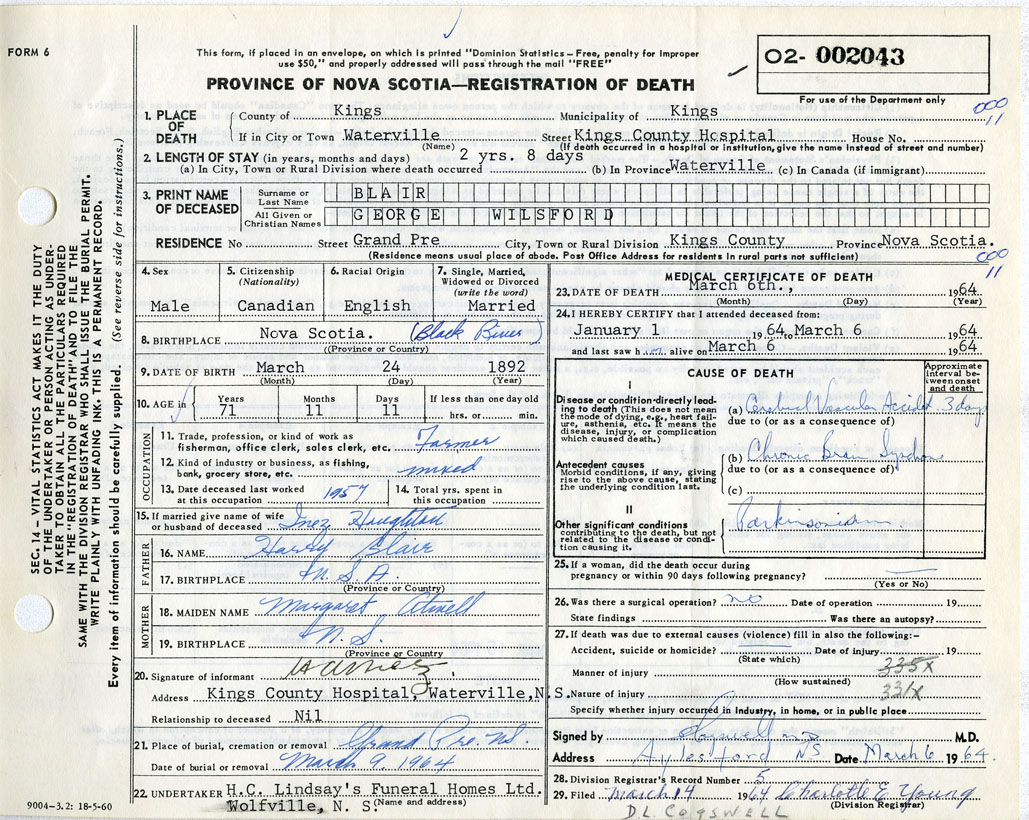 FORM 6
This form, if placed in an envelope, on which is printed "Dominion Statistics – Free, penalty for improper
use $50," and properly addressed will pass through the mail "FREE"
O2- 002043
PROVINCE OF NOVA SCOTIA—REGISTRATION OF DEATH
For use of the Department only
1. PLACE OF DEATH County of Kings Municipality of Kings 000 11
If in City or Town Waterville (Name) Street Kings County Hospital House No.
(If death occurred in a hospital or institution, give the name instead of street and number)
2. LENGTH OF STAY (in years, months and days) 2 yrs. 8 days
(a) In City, Town or Rural Division where death occurred (b) In Province Waterville (c) In Canada (if immigrant)
3. PRINT NAME OF DECEASED Surname or Last Name BLAIR
All Given or Christian Names GEORGE WILSFORD
RESIDENCE No Street Grand Pre City, Town or Rural Division Kings County Province Nova Scotia.
(Residence means usual place of abode. Post Office Address for residents in rural parts not sufficient) 000 11
4. Sex Male
5. Citizenship (Nationality) Canadian
6. Racial Origin English
7. Single, Married, Widowed or Divorced (write the word) Married
8. BIRTHPLACE Nova Scotia. (Black River)
(Province or Country)
9. DATE OF BIRTH March 24 1892
(Month) (Day) (Year)
10. AGE in Years 71 Months 11 Days 11 If less than one day old hrs. or min.
OCCUPATION
11. Trade, profession, or kind of work as fisherman, office clerk, sales clerk, etc. Farmer
12. Kind of industry or business, as fishing, bank, grocery store, etc. mixed
13. Date deceased last worked at this occupation 1957
14. Total yrs. spent in this occupation
15. If married give name of wife or husband of deceased Inez Houghton
FATHER
16. NAME Harry Blair
17. BIRTHPLACE N.S.
(Province or Country)
MOTHER
18. MAIDEN NAME Margaret Atwell
19. BIRTHPLACE N.S.
(Province or Country
20. Signature of informant
Address Kings County Hospital, Waterville, N.S.
Relationship to deceased Nil
21. Place of burial, cremation or removal Grand Pre. N.S.
Date of burial or removal March 9, 1964
22. UNDERTAKER H.C. Lindsay's Funeral Homes Ltd.
Wolfville, N. S. (Name and address)
9004-3.2: 18-5-60
MEDICAL CERTIFICATE OF DEATH
23. DATE OF DEATH March 6th., 1964
(Month) (Day) (Year)
24. I HEREBY CERTIFY that I attended deceased from:
January 1 1964 March 6 1964
and last saw him alive on March 6 1964
CAUSE OF DEATH
Approximate interval between onset and death
I
Disease or condition directly leading to death (This does not mean the mode of dying, e.g., heart failure, asthenia, etc. It means the disease, injury, or complication which caused death.)
(a) Cerebral Vascular Accident 3 day
due to (or as a consequence of)
Antecedent causes
Morbid conditions, if any, giving rise to the above cause, stating the underlying condition last.
(b) Chronic Brain Syndrom
due to (or as a consequence of)
(c)
II
Other significant conditions contributing to the death, but not related to the disease or condition causing it.
Parkinsonism
25. If a woman, did the death occur during
pregnancy or within 90 days following pregnancy?
(Yes or No)
26. Was there a surgical operation? no Date of operation 19
State findings Was there an autopsy?
27. If death was due to external causes (violence) fill in also the following:–
Accident, suicide or homicide? Date of injury 19
(State which)
Manner of injury 335X
(How sustained)
Nature of injury 331X
Specify whether injury occurred in Industry, in home, or in public place
Signed by M.D.
Address Aylesford NS Date March 6 1964
28. Division Registrar's Record Number 5
29. Filed March 14 1964 Charlotte E Young
(Division Registrar)
D.L. COGSWELL
SEC. 14 – VITAL STATISTICS ACT MAKES IT THE DUTY
OF THE UNDERTAKER OR PERSON ACTING AS UNDER-
TAKER TO OBTAIN ALL THE PARTICULARS REQUIRED
IN THE "REGISTRATION OF DEATH" AND TO FILE THE
SAME WITH THE DIVISION REGISTRAR WHO SHALL ISSUE THE BURIAL PERMIT.
WRITE PLAINLY WITH UNFADING INK. THIS IS A PERMANENT RECORD.
Every item of information should be carefully supplied. (See reverse side for instructions.)